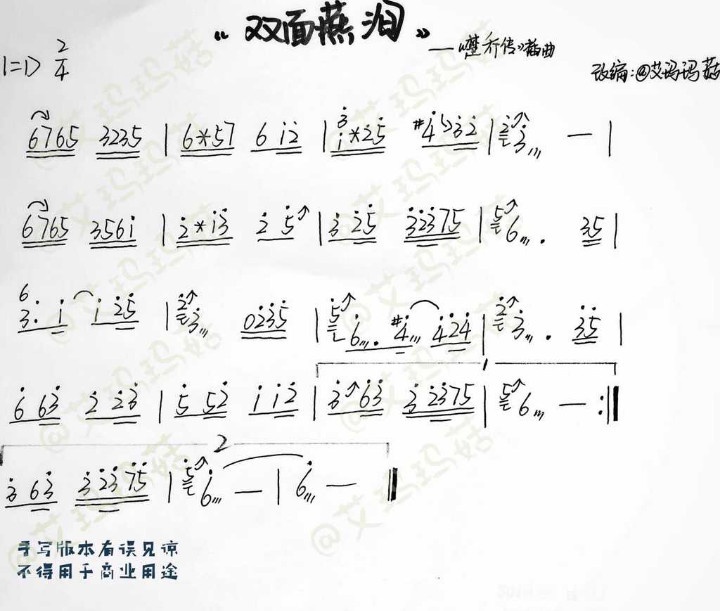 《双面燕洵》
——《楚乔传》插曲
1=D 2/4
改编:@艾玛玛菇
6765 3235 | 6*57 6 i2 | i*25 #4 32 | 3 — |
6765 356i | 2*i3 2 5 | 3 25 32375 | 6 . 35 |
3. i i 25 | 3 0235 | 6. #4 424 | 3 . 35 |
6 63 2 23 | 5 52 i i2 | 3 63 3 2375 | 6 — :||
3 63 3 2375 | 6 — | 6 — ||
手写版本有误见谅
不得用于商业用途
@艾玛玛菇